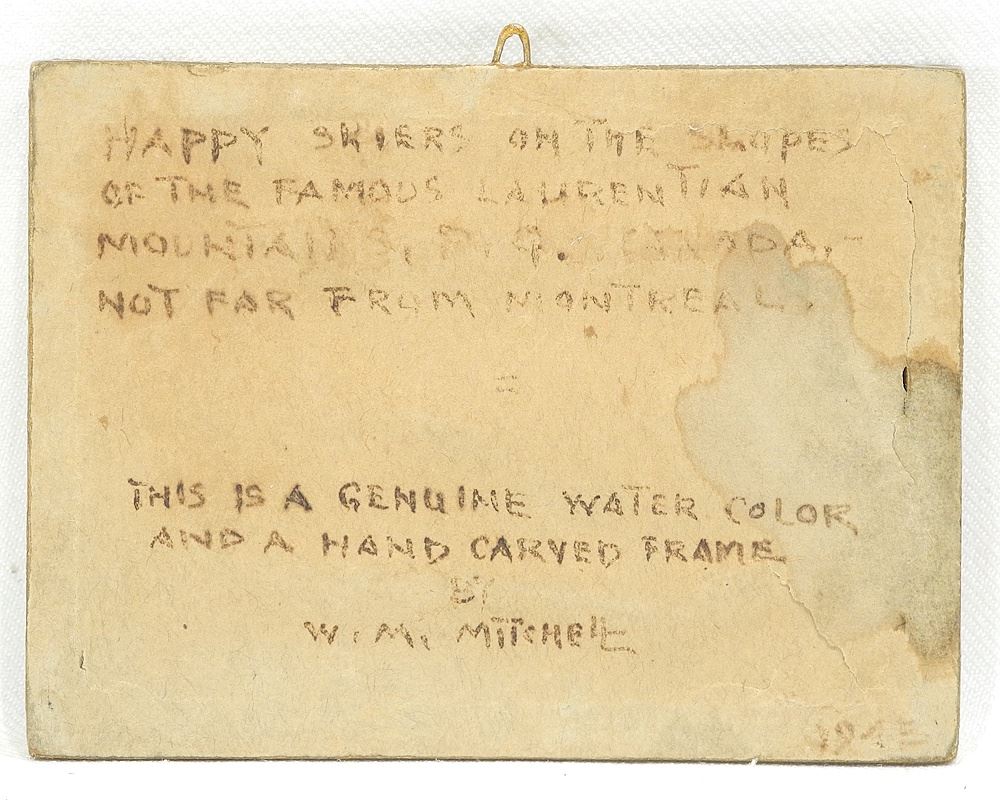 HAPPY SKIERS ON THE SLOPES
OF THE FAMOUS LAURENTIAN
MOUNTAINS, P.Q. CANADA,-
NOT FAR FROM MONTREAL.
THIS IS A GENUINE WATER COLOR
AND A HAND CARVED FRAME
BY
W. M. MITCHELL